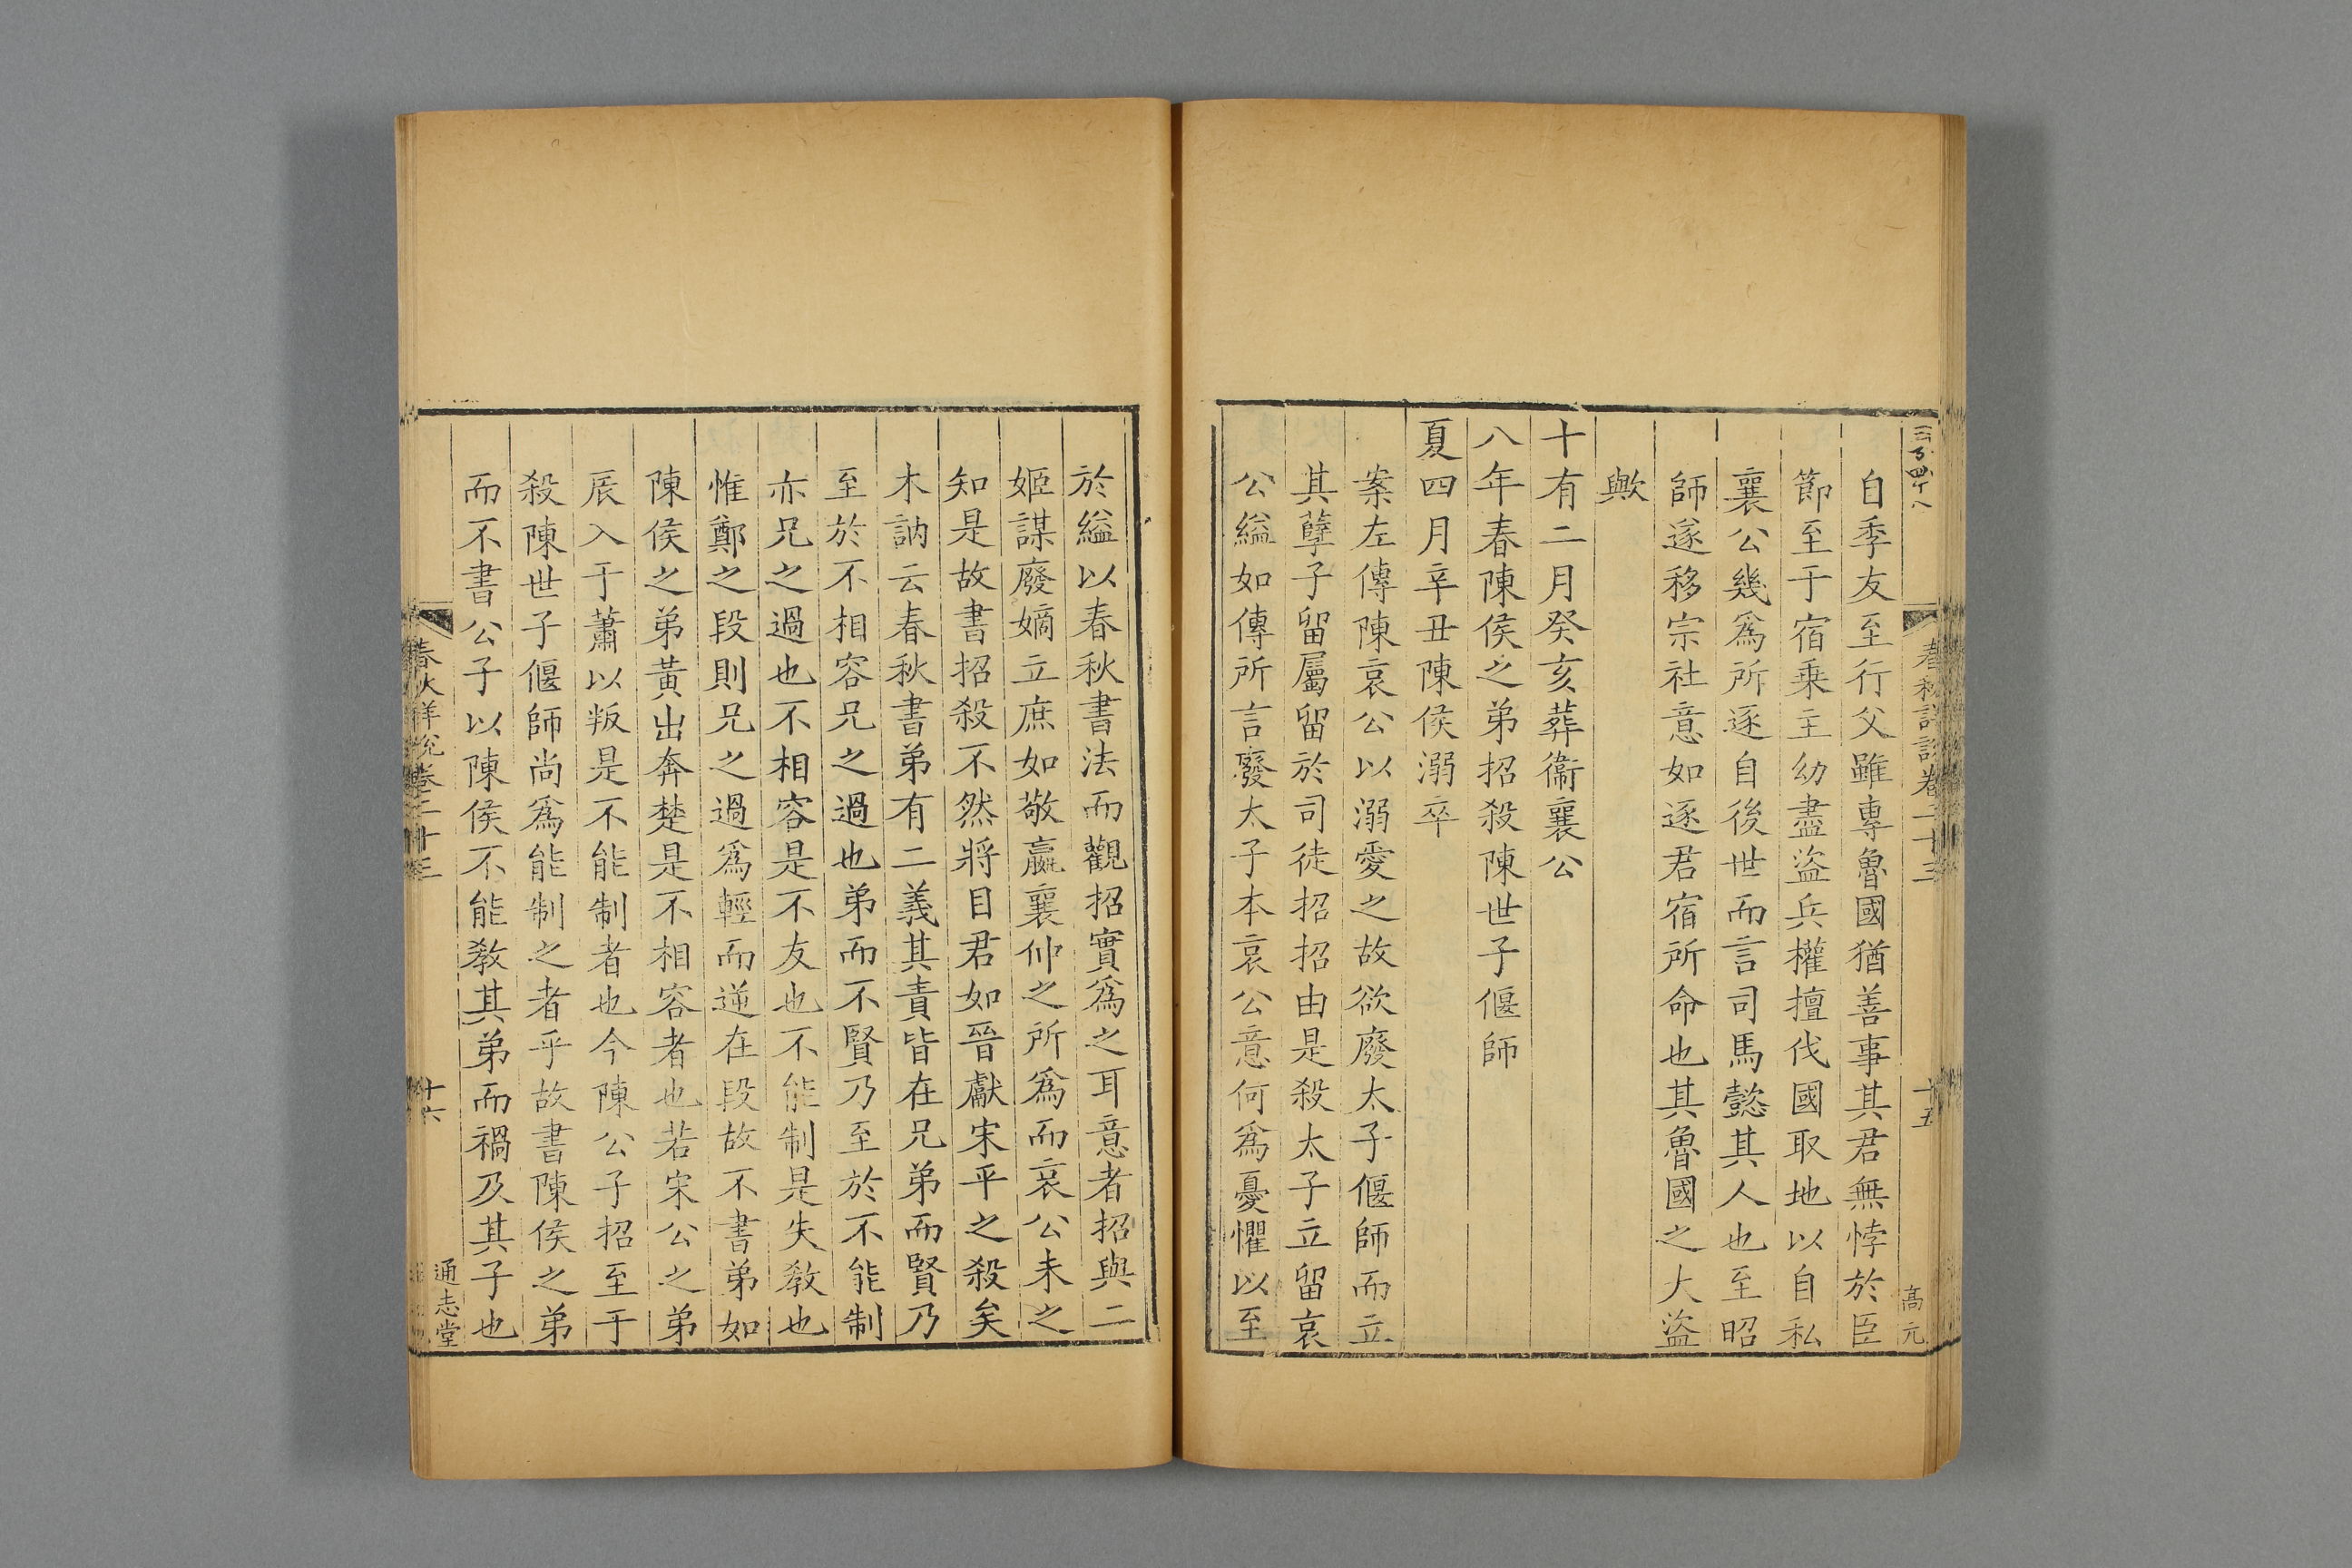 三百四十八
春秋詳說卷二十三
十五
高元
自季友至行父雖專魯國猶善事其君無悖於臣
節至于宿乗主幼盡盜兵權擅伐國取地以自私
襄公幾爲所逐自後世而言司馬懿其人也至昭
師遂移宗社意如逐君宿所命也其魯國之大盜
歟
十有二月癸亥葬衞襄公
八年春陳侯之弟招殺陳世子偃師
夏四月辛丑陳侯溺卒
案左傳陳哀公以溺愛之故欲廢太子偃師而立
其孽子留屬留於司徒招招由是殺太子立留哀
公縊如傳所言廢太子本哀公意何爲憂懼以至
於縊以春秋書法而觀招實爲之耳意者招與二
姬謀廢嫡立庶如敬嬴襄仲之所爲而哀公未之
知是故書招殺不然將目君如晉獻宋平之殺矣
木訥云春秋書弟有二義其責皆在兄弟而賢乃
至於不相容兄之過也弟而不賢乃至於不能制
亦兄之過也不相容是不友也不能制是失敎也
惟鄭之段則兄之過爲輕而逆在段故不書弟如
陳侯之弟黃出奔楚是不相容者也若宋公之弟
辰入于蕭以叛是不能制者也今陳公子招至于
殺陳世子偃師尚爲能制之者乎故書陳侯之弟
而不書公子以陳侯不能敎其弟而禍及其子也
春秋詳說卷二十三
十六
通志堂